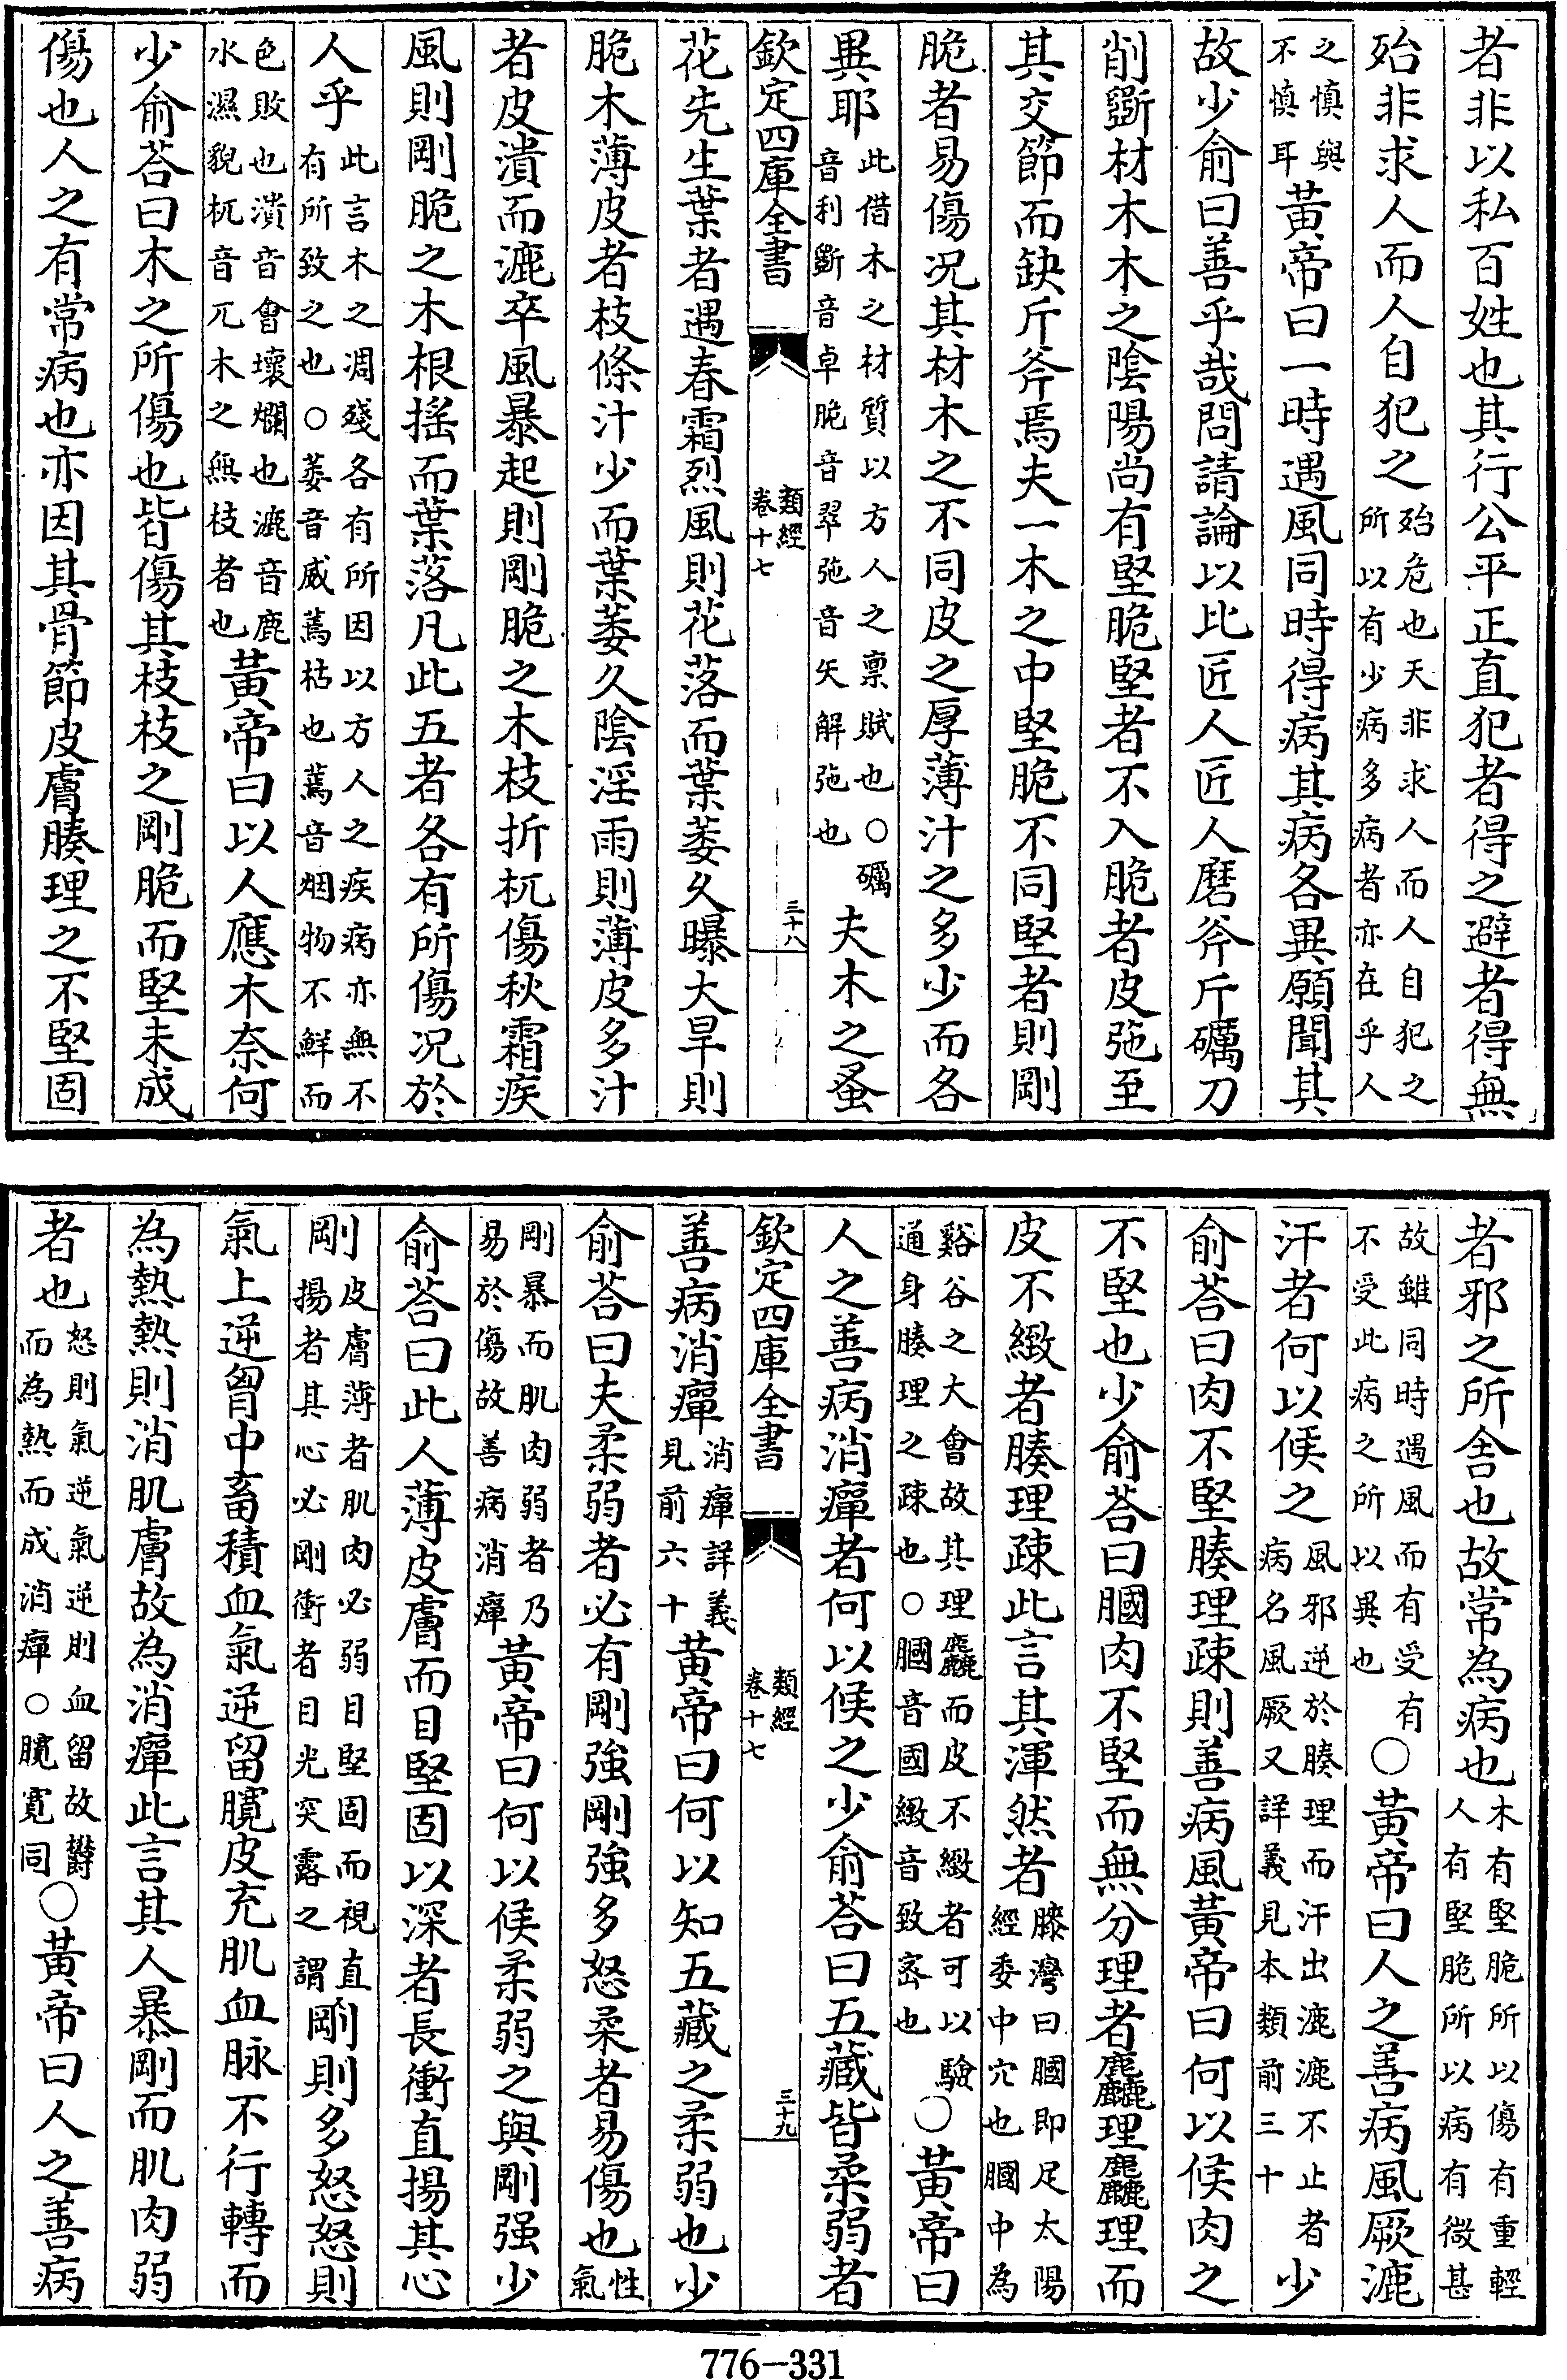 者非以私百姓也其行公平正直犯者得之避者得無
殆非求人而人自犯之殆危也天非求人而人自犯之所以有少病多病者亦在乎人
之慎與不慎耳黃帝曰一時遇風同時得病其病各異願聞其
故少俞曰善乎哉問請論以比匠人匠人磨斧斤礪刀
削斵材木木之陰陽尚有堅脆堅者不入脆者皮弛至
其交節而缺斤斧焉夫一木之中堅脆不同堅者則剛
脆者易傷况其材木之不同皮之厚薄汁之多少而各
異耶此借木之材質以方人之禀賦也○礪音利斵音卓脆音翠弛音矢解弛也夫木之蚤
花先生葉者遇春霜烈風則花落而葉萎久曝大旱則
脆木薄皮者枝條汁少而葉萎久陰淫雨則薄皮多汁
者皮潰而漉卒風暴起則剛脆之木枝折杌傷秋霜疾
風則剛脆之木根搖而葉落凡此五者各有所傷况於
人乎此言木之凋殘各有所因以方人之疾病亦無不有所致之也○萎音威蔫枯也蔫音烟物不鮮而
色敗也潰音會壞爛也漉音鹿水濕貌杌音兀木之無枝者也黃帝曰以人應木奈何
少俞荅曰木之所傷也皆傷其枝枝之剛脆而堅未成
傷也人之有常病也亦因其骨節皮膚腠理之不堅固
欽定四庫全書
類經
卷十七
三十八
者邪之所舍也故常為病也木有堅脆所以傷有重輕人有堅脆所以病有微甚
故雖同時遇風而有受有不受此病之所以異也○黃帝曰人之善病風厥漉
汗者何以候之風邪逆於腠理而汗出漉漉不止者病名風厥又詳義見本類前三十少
俞荅曰肉不堅腠理疎則善病風黃帝曰何以候肉之
不堅也少俞荅曰膕肉不堅而無分理者麤理麤理而
皮不緻者腠理疎此言其渾然者膝灣曰膕即足太陽經委中穴也膕中為
谿谷之大會故其理麤而皮不緻者可以驗通身腠理之疎也○膕音國緻音致密也○黃帝曰
人之善病消癉者何以候之少俞荅曰五藏皆柔弱者
善病消癉消癉詳義見前六十黃帝曰何以知五藏之柔弱也少
俞荅曰夫柔弱者必有剛強剛強多怒柔者易傷也性氣
剛暴而肌肉弱者乃易於傷故善病消癉黃帝曰何以候柔弱之與剛强少
俞荅曰此人薄皮膚而目堅固以深者長衝直揚其心
剛皮膚薄者肌肉必弱目堅固而視直揚者其心必剛衝者目光突露之謂剛則多怒怒則
氣上逆胷中畜積血氣逆留臗皮充肌血脉不行轉而
為熱熱則消肌膚故為消癉此言其人暴剛而肌肉弱
者也怒則氣逆氣逆則血留故鬱而為熱而成消癉○臗寛同○黃帝曰人之善病
欽定四庫全書
類經
卷十七
三十九
776-331